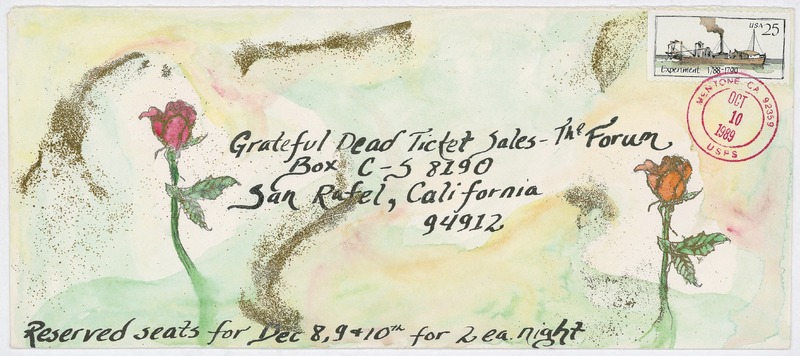 USA 25
Experiment 1788-1790
MENTONE CA 92359
OCT
10
1989
USPS
Grateful Dead Ticket Sales - The Forum
Box C-S 8190
San Rafel, California
94912
Reserved seats for Dec 8, 9 + 10th for 2 ea. night